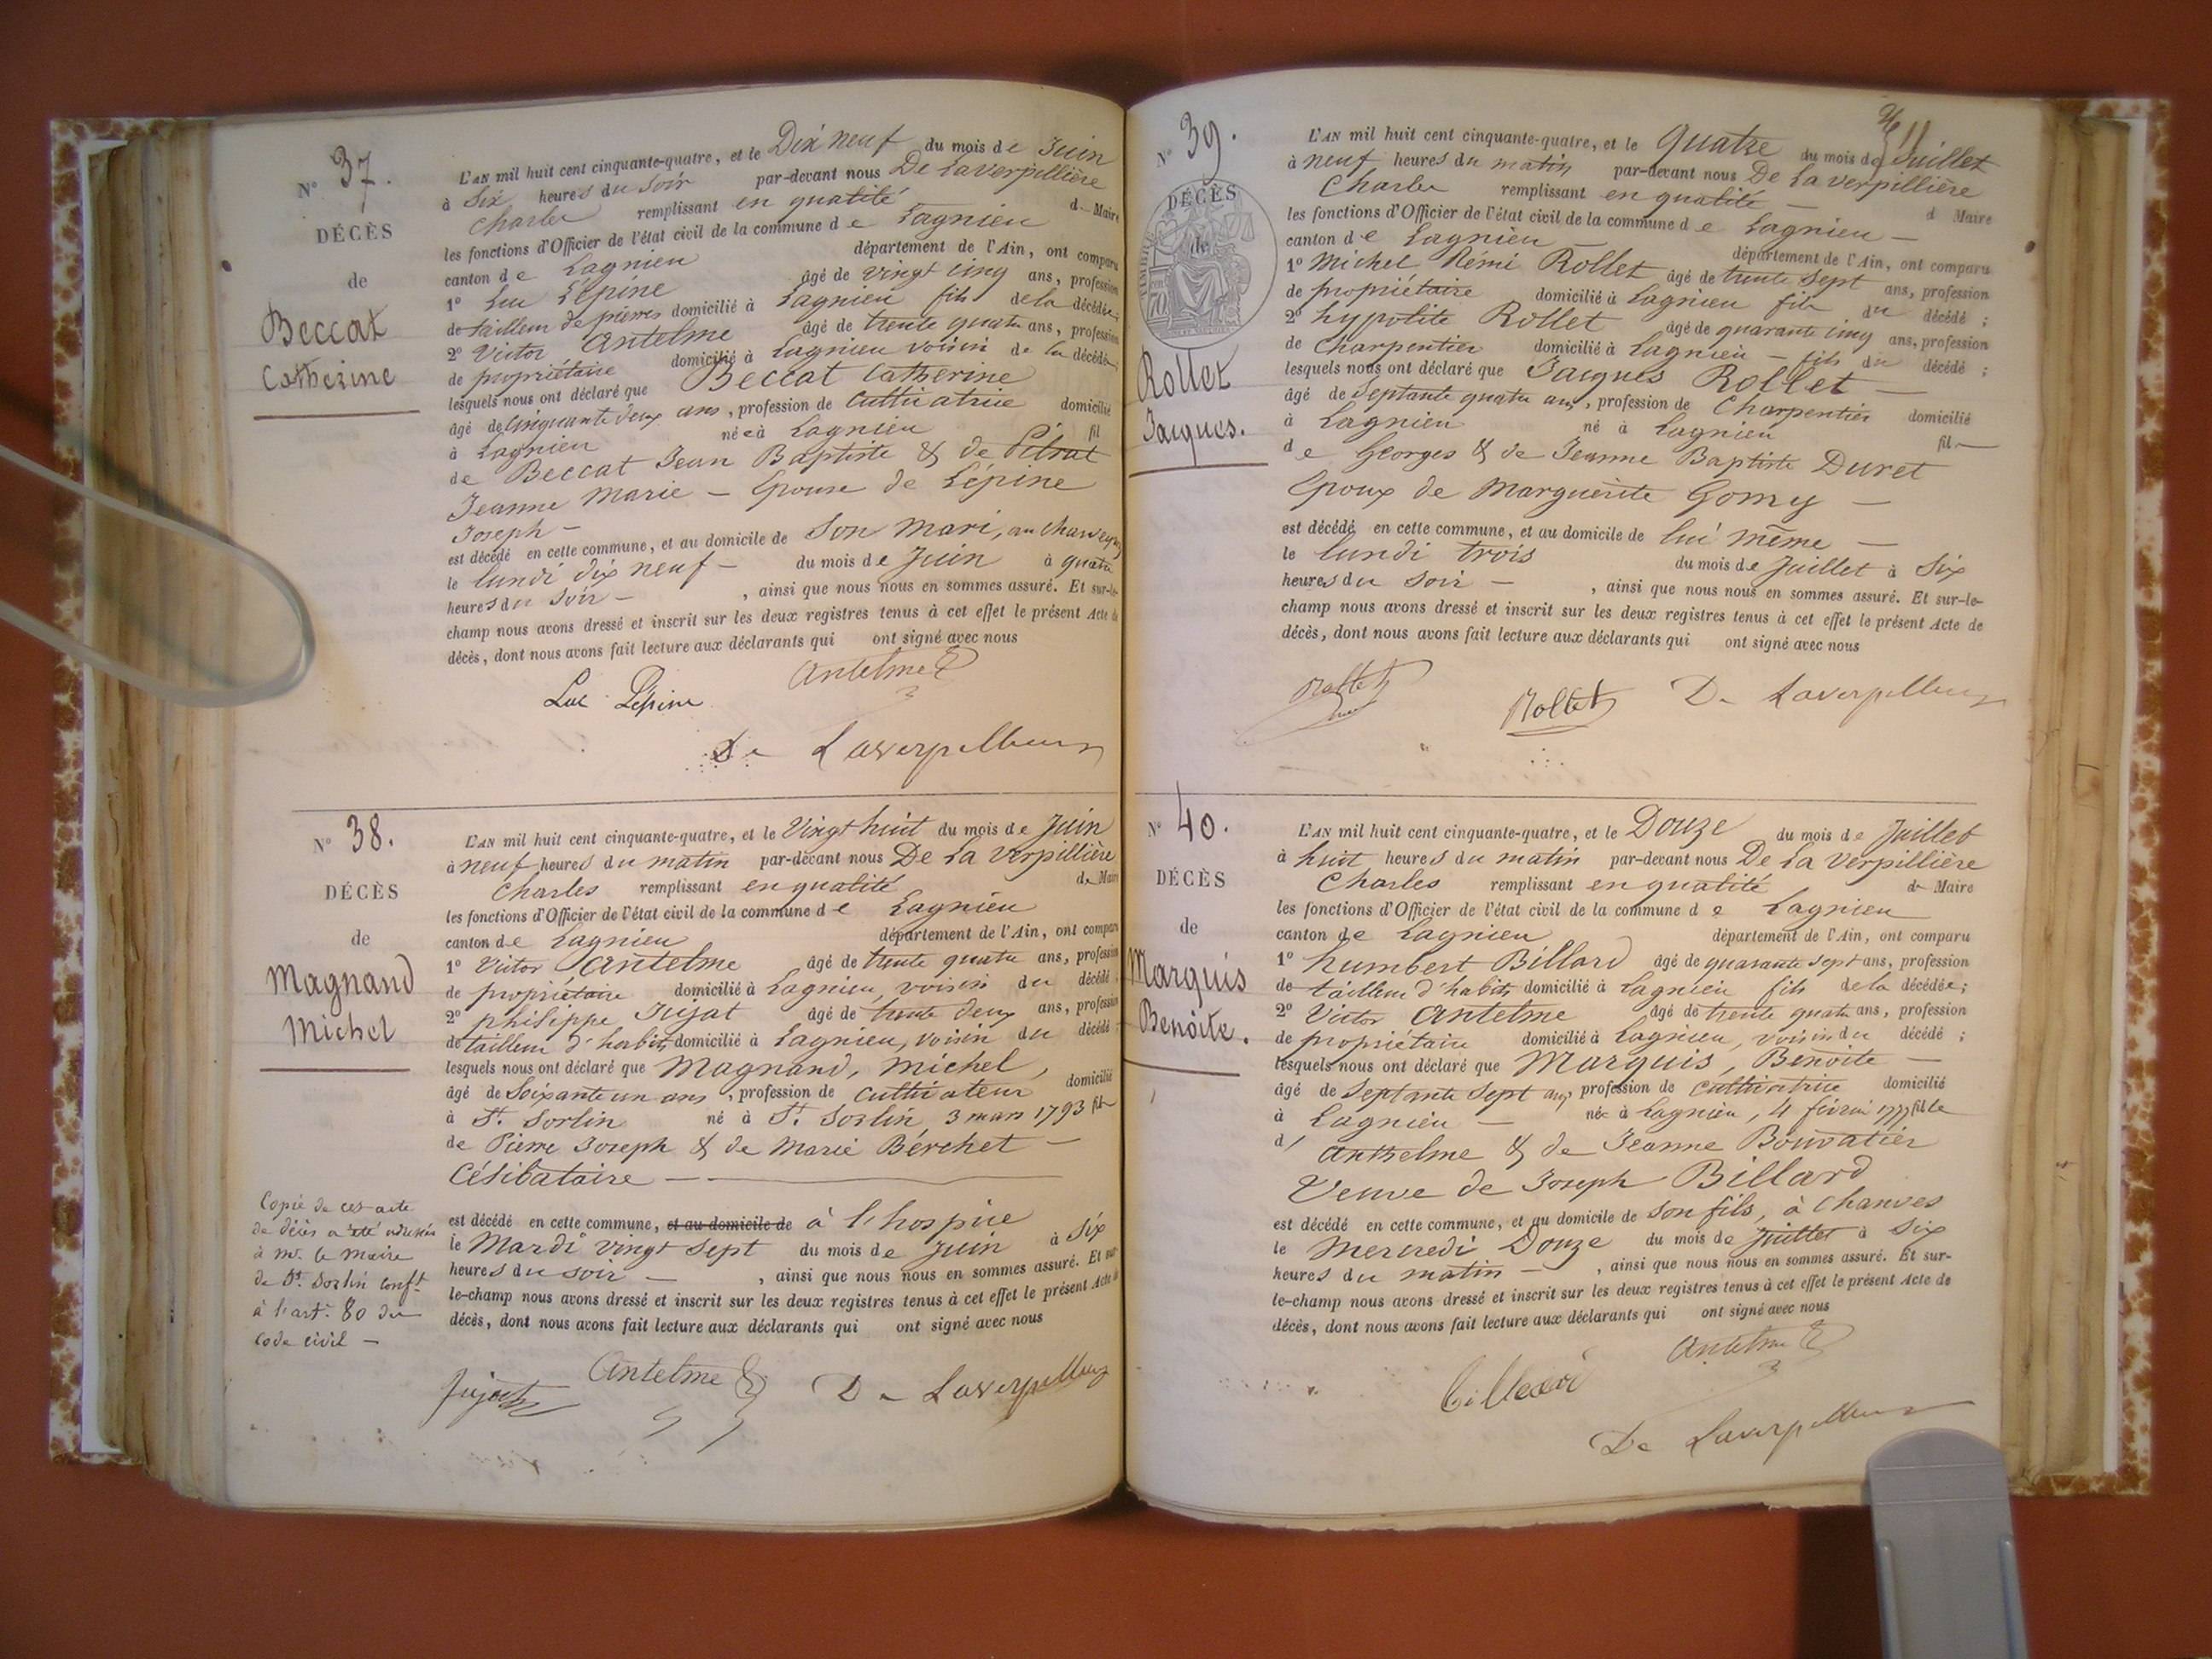 N° 37.
DÉCÈS
de
Beccat
Catherine
L'AN mil huit cent cinquante-quatre, et le Dix neuf du mois de Juin
à Six heures du Soir par-devant nous De Laverpillière
Charles remplissant en qualité de Maire
les fonctions d'Officier de l'état civil de la commune de Lagnieu
canton de Lagnieu département de l'Ain, ont comparu
1° Luc Lépine âgé de vingt cinq ans, profession
de tailleur de pierres domicilié à Lagnieu fils de la décédée;
2° Victor Antelme âgé de trente quatre ans, profession
de propriétaire domicilié à Lagnieu voisin de la décédée;
lesquels nous ont déclaré que Beccat Catherine
âgé de Cinquante deux ans, profession de Cultivatrice domicilié
à Lagnieu née à Lagnieu fil
de Beccat Jean Baptiste & de
Jeanne Marie - Epouse de Lépine
Joseph -
est décédé en cette commune, et au domicile de Son Mari, au
le lundi dix neuf - du mois de Juin à quatre
heures du Soir - , ainsi que nous nous en sommes assuré. Et sur-le-
champ nous avons dressé et inscrit sur les deux registres tenus à cet effet le présent Acte de
décès, dont nous avons fait lecture aux déclarants qui ont signé avec nous
Luc Lépine Antelme
De Laverpilliere
N° 38.
DÉCÈS
de
Magnand
Michel
L'AN mil huit cent cinquante-quatre, et le Vingt huit du mois de Juin
à neuf heures du matin par-devant nous De La Verpillière
Charles remplissant en qualité de Maire
les fonctions d'Officier de l'état civil de la commune de Lagnieu
canton de Lagnieu département de l'Ain, ont comparu
1° Victor Antelme âgé de trente quatre ans, profession
de propriétaire domicilié à Lagnieu, voisin du décédé;
2° philippe Jujat âgé de trente deux ans, profession
de tailleur d'habits domicilié à Lagnieu, voisin du décédé;
lesquels nous ont déclaré que Magnand, Michel,
âgé de Soixante un ans, profession de Cultivateur domicilié
à St. Sorlin né à St. Sorlin, 3 mars 1793 fils
de Pierre Joseph & de Marie Berchet -
Célibataire -
est décédé en cette commune, et au domicile de à l'hospice
le Mardi vingt sept du mois de Juin à Six
heures du soir - , ainsi que nous nous en sommes assuré. Et sur-
le-champ nous avons dressé et inscrit sur les deux registres tenus à cet effet le présent Acte de
décès, dont nous avons fait lecture aux déclarants qui ont signé avec nous
Copie de cet acte
de décès a été adressée
à mr. le maire
de St. Sorlin conft.
à l'art. 80 du
Code civil -
Jujat Antelme De Laverpilliere
N° 39.
DÉCÈS
de
Rollet
Jacques.
L'AN mil huit cent cinquante-quatre, et le Quatre du mois de Juillet
à neuf heures du matin par-devant nous De La verpillière
Charles remplissant en qualité - d Maire
les fonctions d'Officier de l'état civil de la commune de Lagnieu -
canton de Lagnieu - département de l'Ain, ont comparu
1° Michel Rémi Rollet âgé de trente Sept ans, profession
de propriétaire domicilié à Lagnieu fils du décédé;
2° hypolite Rollet âgé de quarante cinq ans, profession
de Charpentier domicilié à Lagnieu - fils du décédé;
lesquels nous ont déclaré que Jacques Rollet -
âgé de Septante quatre ans, profession de Charpentier domicilié
à Lagnieu né à Lagnieu fil
de Georges & de Jeanne Baptiste Duret
Epoux de Marguerite Gomy -
est décédé en cette commune, et au domicile de lui même -
le lundi trois du mois de Juillet à Six
heures du soir - , ainsi que nous nous en sommes assuré. Et sur-le-
champ nous avons dressé et inscrit sur les deux registres tenus à cet effet le présent Acte de
décès, dont nous avons fait lecture aux déclarants qui ont signé avec nous
Rollet Rollet De Laverpilliere
N° 40.
DÉCÈS
de
Marquis
Benoite.
L'AN mil huit cent cinquante-quatre, et le Douze du mois de Juillet
à huit heures du matin par-devant nous De La Verpillière
Charles remplissant en qualité de Maire
les fonctions d'Officier de l'état civil de la commune de Lagnieu
canton de Lagnieu département de l'Ain, ont comparu
1° humbert Billard âgé de quarante sept ans, profession
de tailleur d'habits domicilié à Lagnieu fils de la décédée;
2° Victor Antelme âgé de trente quatre ans, profession
de propriétaire domicilié à Lagnieu, voisin du décédé;
lesquels nous ont déclaré que Marquis, Benoite -
âgé de Septante Sept ans, profession de cultivatrice domicilié
à Lagnieu - née à Lagnieu, 4 février 1777 fille
d' Anthelme & de Jeanne Bouvatier
Veuve de Joseph Billard
est décédé en cette commune, et au domicile de son fils, à Chanves
le Mercredi Douze du mois de Juillet à Six
heures du matin - , ainsi que nous nous en sommes assuré. Et sur-
le-champ nous avons dressé et inscrit sur les deux registres tenus à cet effet le présent Acte de
décès, dont nous avons fait lecture aux déclarants qui ont signé avec nous
Billard Antelme
De Laverpilliere